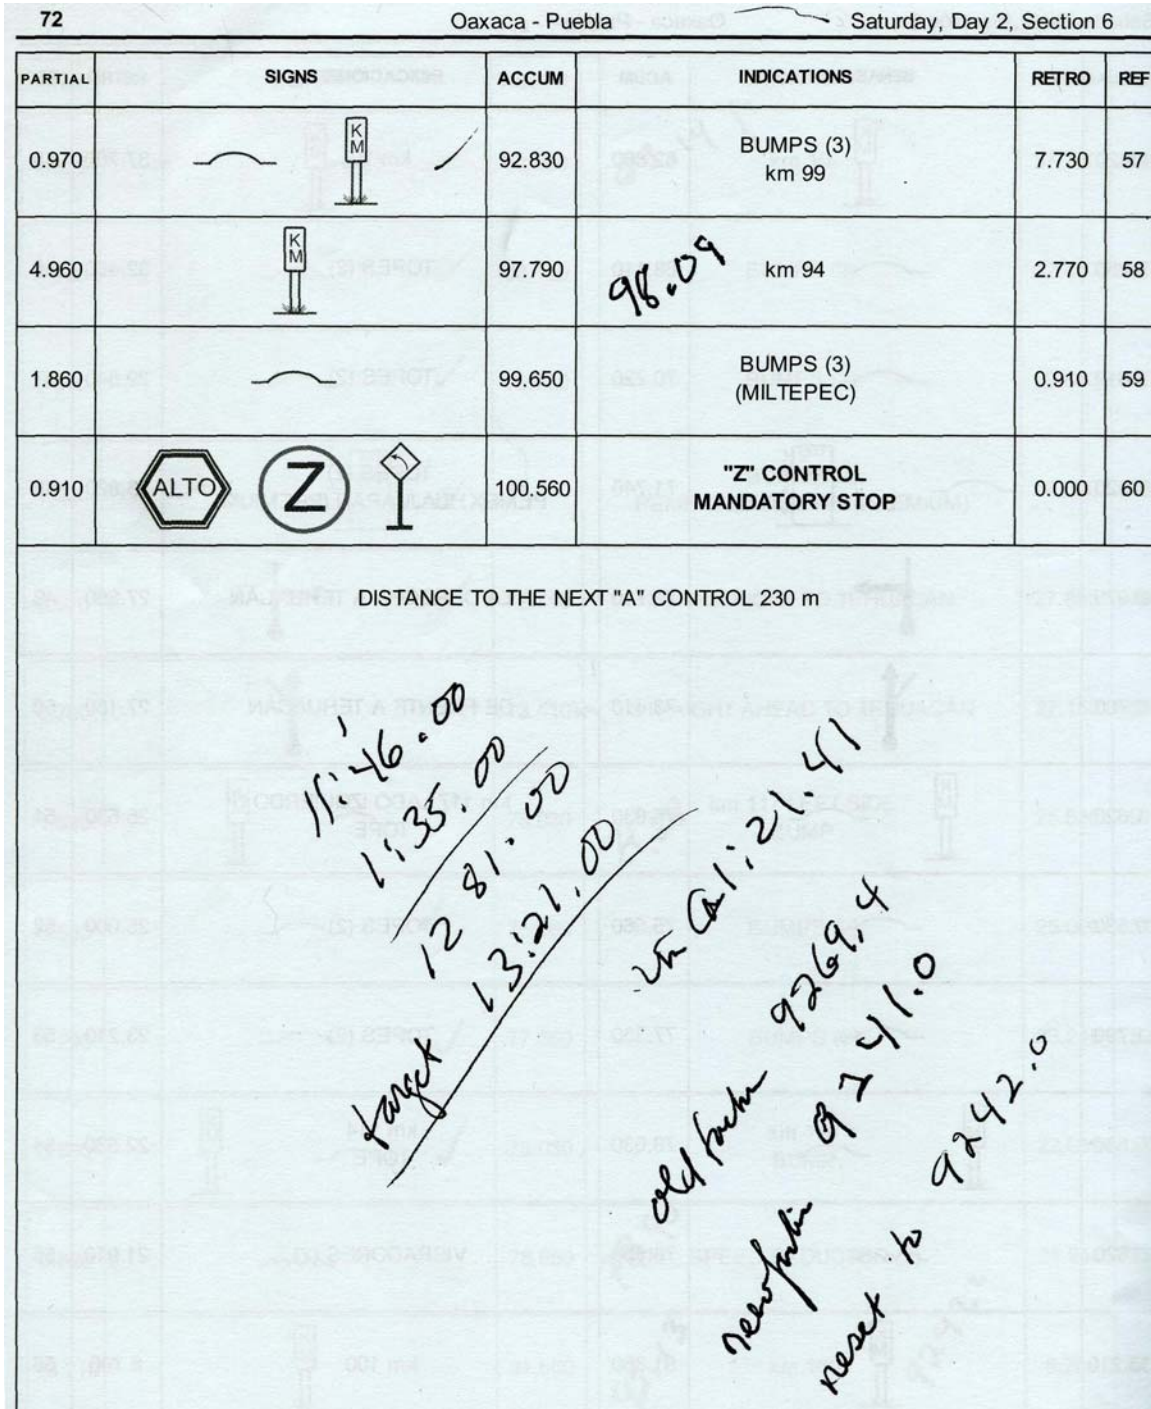 72 Oaxaca - Puebla Saturday, Day 2, Section 6
PARTIAL SIGNS ACCUM INDICATIONS RETRO REF
0.970 KM 92.830 BUMPS (3) 7.730 57
km 99
4.960 KM 97.790 98.09 km 94 2.770 58
1.860 99.650 BUMPS (3) 0.910 59
(MILTEPEC)
0.910 ALTO Z 100.560 "Z" CONTROL 0.000 60
MANDATORY STOP
DISTANCE TO THE NEXT "A" CONTROL 230 m
11:46.00
1:35.00
12 81.00
target 13:21.00
Cal: 21.41
old factor 9269.4
new factor 9241.0
reset to 9242.0